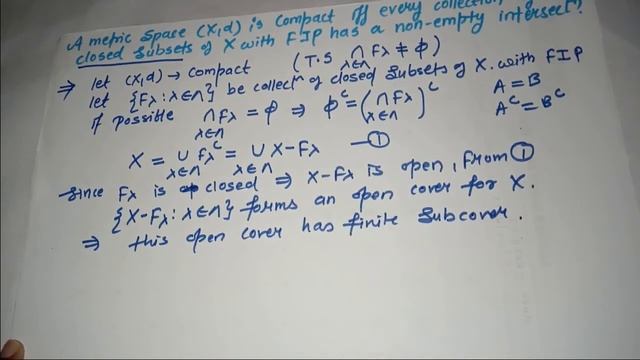 A metric space (X,d) is compact iff every collection of
closed subsets of X with FIP has a non-empty intersectn.
⇒ let (X,d) → compact (T.S ∩ Fλ ≠ ϕ)
λ∈Λ
let {Fλ : λ∈Λ} be collectn of closed subsets of X. with FIP
if possible ∩ Fλ = ϕ ⇒ ϕ^c = (∩ Fλ)^c A = B
λ∈Λ λ∈Λ A^c = B^c
X = ∪ Fλ^c = ∪ X-Fλ —①
λ∈Λ λ∈Λ
Since Fλ is closed ⇒ X-Fλ is open, from ①
{X-Fλ : λ∈Λ} forms an open cover for X.
⇒ this open cover has finite subcover.